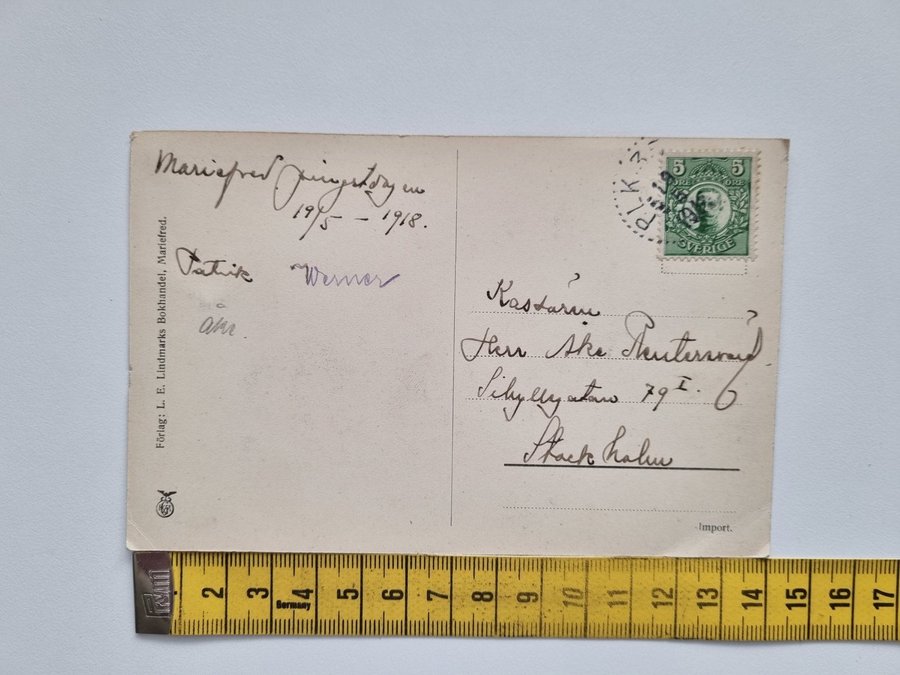 Mariefred pingstdagen
19/5 – 1918.
Patrik Werner
Åke
Förlag: L. E. Lindmarks Bokhandel, Mariefred.
PLK 3
5 5
ÖRE ÖRE
SVERIGE
Herr Åke Reuterswärd
Sibyllegatan 79 I.
Stockholm
Import.
2 3 4 5 6 7 8 9 10 11 12 13 14 15 16 17
Germany